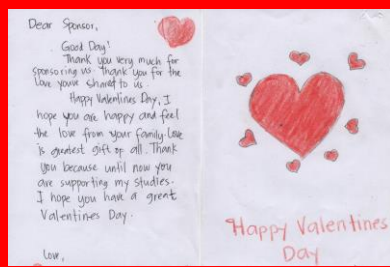 Dear Sponsor,
Good Day!
Thank you very much for
sponsoring us. Thank you for the
Love youve shared to us.
Happy Valentines Day, I
hope you are happy and feel
the love from your family. Love
is greatest gift of all. Thank
you because until now you
are supporting my studies.
I hope you have a great
Valentines Day.
Love,
Happy Valentines
Day